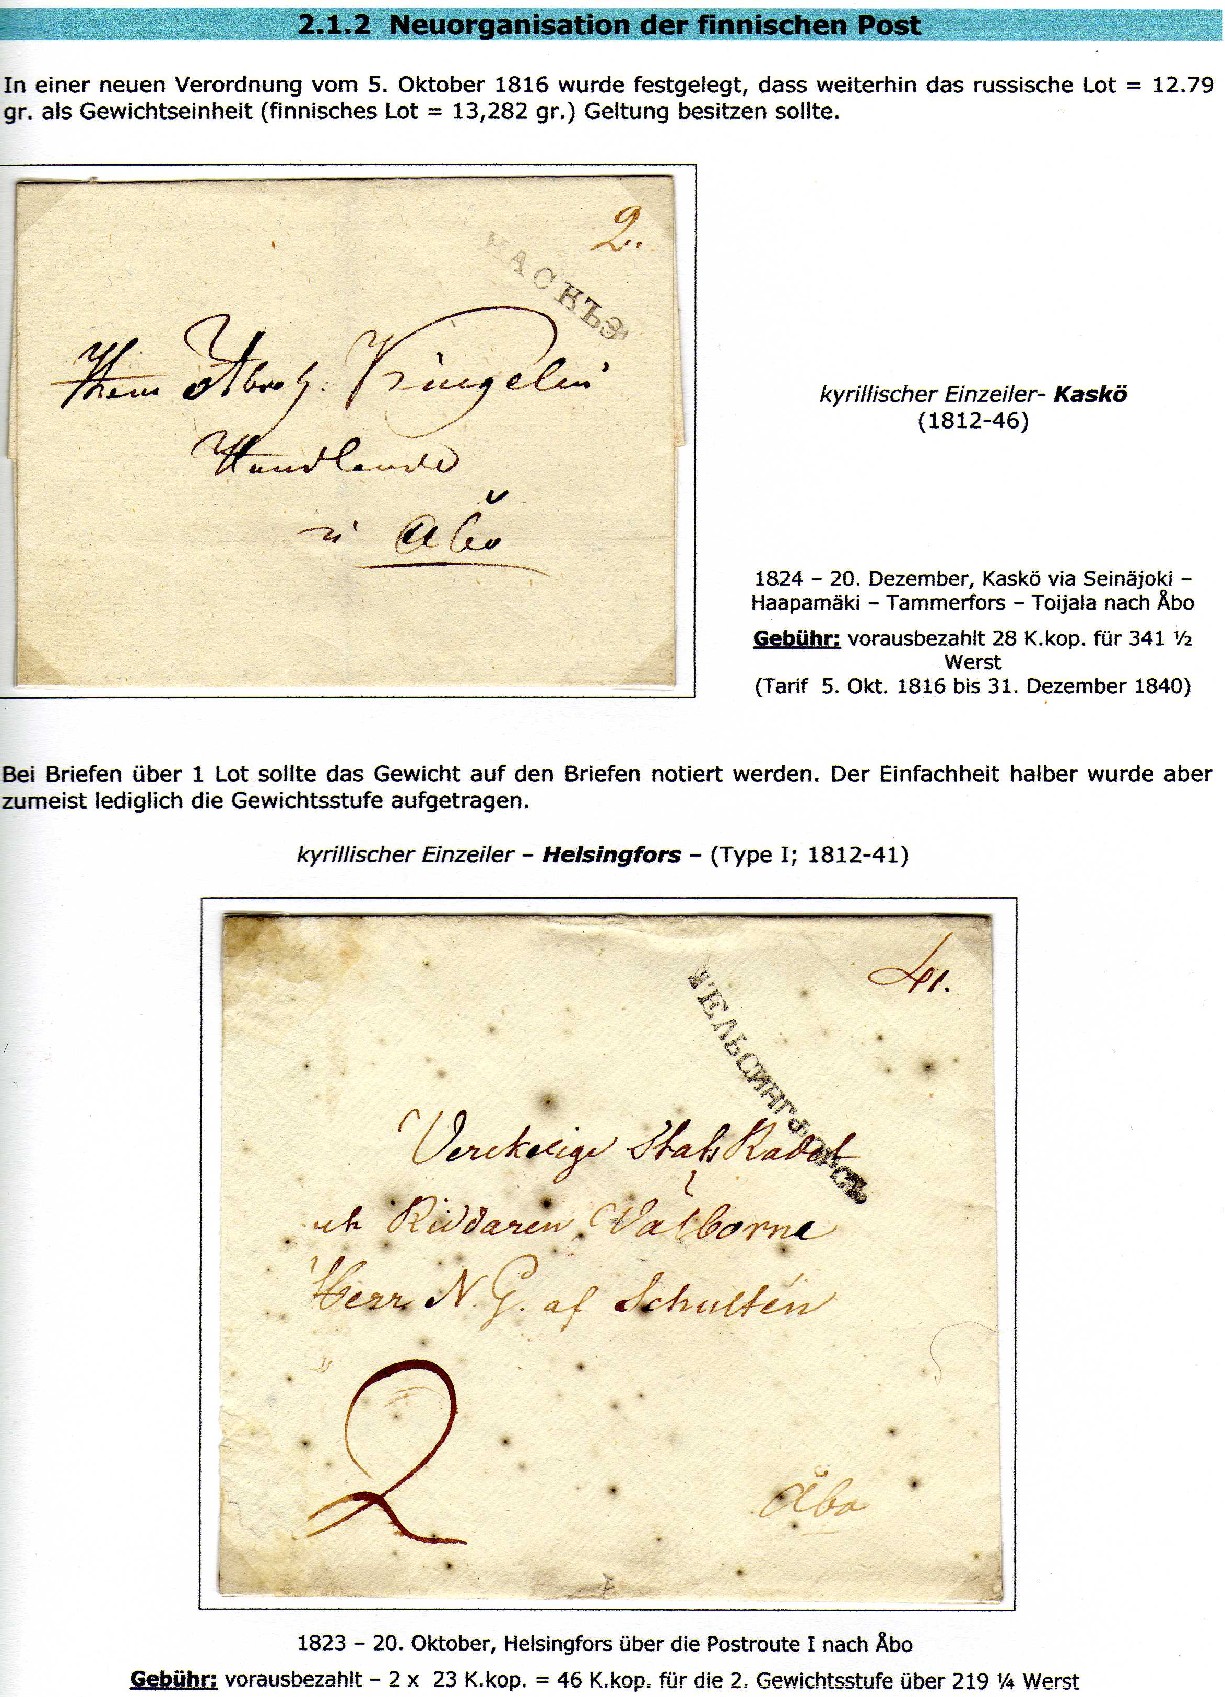 2.1.2 Neuorganisation der finnischen Post
In einer neuen Verordnung vom 5. Oktober 1816 wurde festgelegt, dass weiterhin das russische Lot = 12.79
gr. als Gewichtseinheit (finnisches Lot = 13,282 gr.) Geltung besitzen sollte.
2.
КАСКЪЭ
Herrn Abrah: Kingelin
Handlande
in Åbo
kyrillischer Einzeiler- Kaskö
(1812-46)
1824 – 20. Dezember, Kaskö via Seinäjoki –
Haapamäki – Tammerfors – Toijala nach Åbo
Gebühr: vorausbezahlt 28 K.kop. für 341 ½
Werst
(Tarif 5. Okt. 1816 bis 31. Dezember 1840)
Bei Briefen über 1 Lot sollte das Gewicht auf den Briefen notiert werden. Der Einfachheit halber wurde aber
zumeist lediglich die Gewichtsstufe aufgetragen.
kyrillischer Einzeiler – Helsingfors – (Type I; 1812-41)
ГЕЛЬСИНГФОРСЪ
Stats Rådet
och Riddaren, Välborne
Herr N. G. af Schultén
2
Åbo
1823 – 20. Oktober, Helsingfors über die Postroute I nach Åbo
Gebühr: vorausbezahlt – 2 x 23 K.kop. = 46 K.kop. für die 2. Gewichtsstufe über 219 ¼ Werst